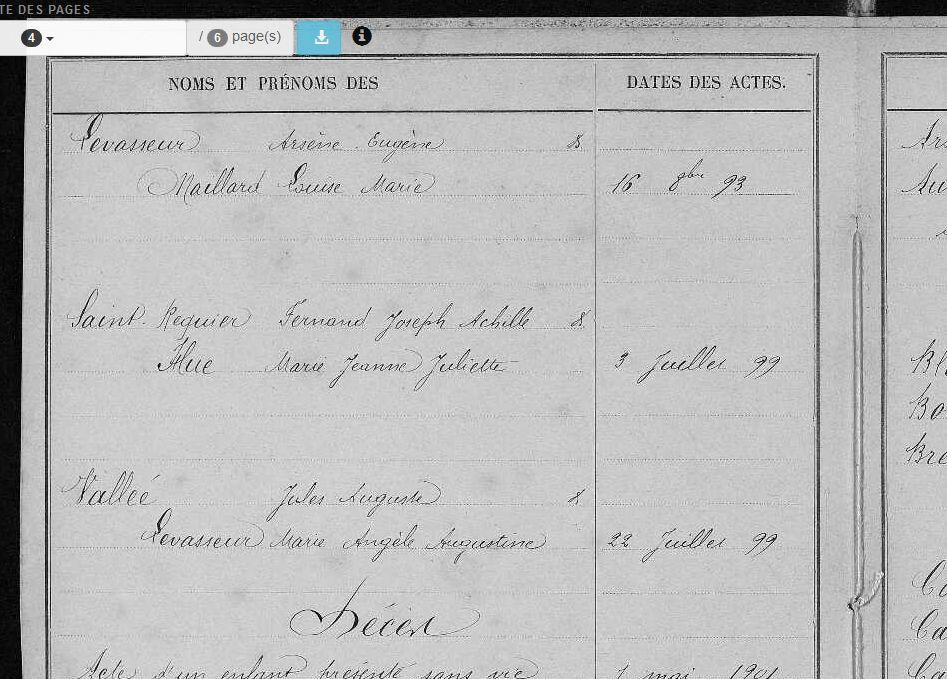 TE DES PAGES
4 / 6 page(s)
NOMS ET PRÉNOMS DES DATES DES ACTES.
Levasseur Arsène Eugène &
Maillard Louise Marie 16 8bre 93
Saint Requier Fernand Joseph Achille &
Hue Marie Jeanne Juliette 3 Juillet 99
Valleé Jules Auguste &
Levasseur Marie Angèle Augustine 22 Juillet 99
Décès
Acte d'un enfant présenté sans vie 1 mai 1901
Ars
Au
Bl
Bo
Bre
Ca
Ca